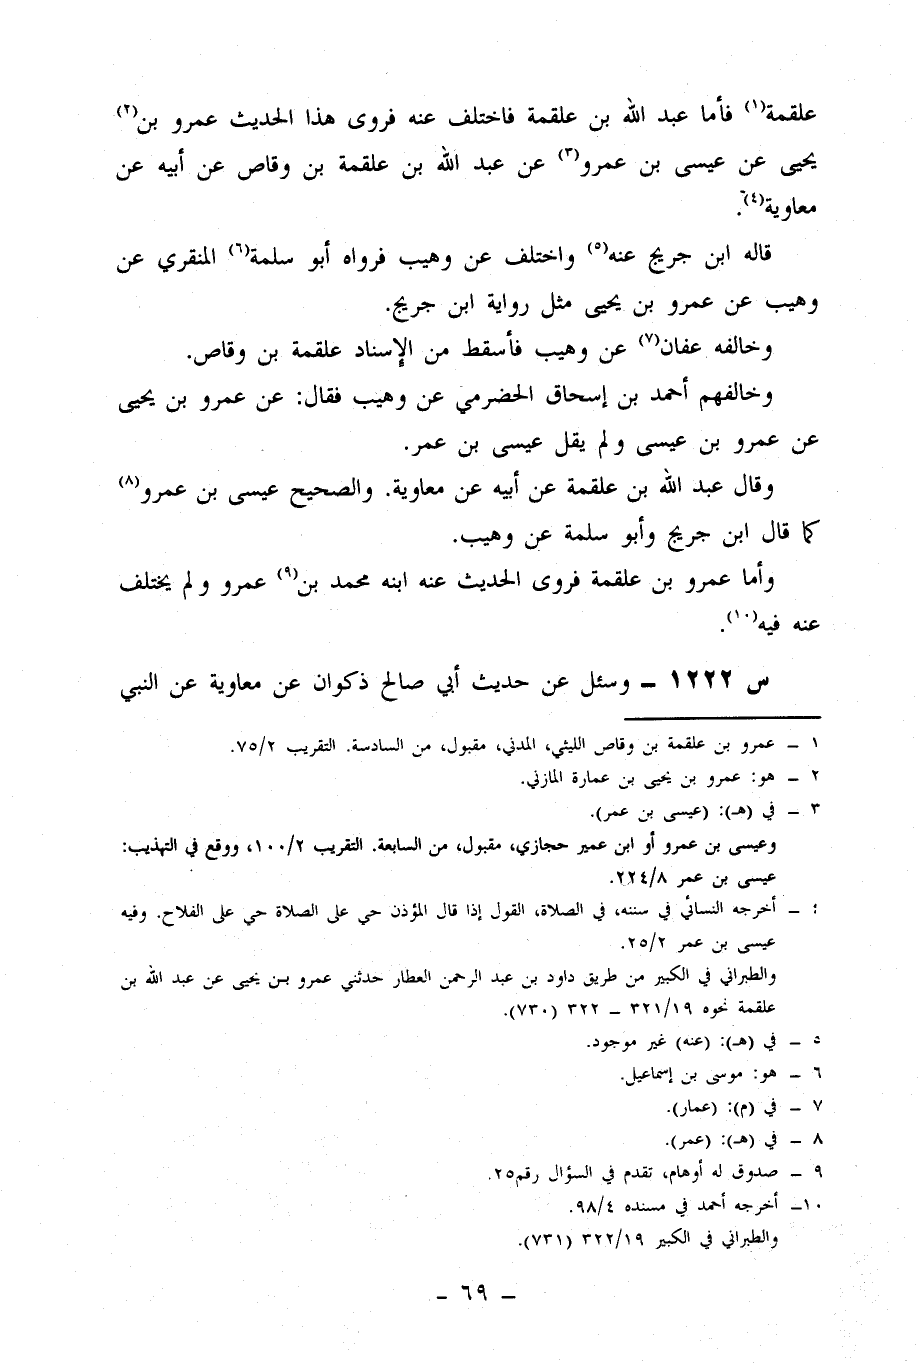 علقمة(١) فأما عبد الله بن علقمة فاختلف عنه فروى هذا الحديث عمرو بن(٢)
يحيى عن عيسى بن عمرو(٣) عن عبد الله بن علقمة بن وقاص عن أبيه عن
معاوية(٤).
قاله ابن جريج عنه(٥) واختلف عن وهيب فرواه أبو سلمة(٦) المنقري عن
وهيب عن عمرو بن يحيى مثل رواية ابن جريج.
وخالفه عفان(٧) عن وهيب فأسقط من الإسناد علقمة بن وقاص.
وخالفهم أحمد بن إسحاق الحضرمي عن وهيب فقال: عن عمرو بن يحيى
عن عمرو بن عيسى ولم يقل عيسى بن عمر.
وقال عبد الله بن علقمة عن أبيه عن معاوية. والصحيح عيسى بن عمرو(٨)
كما قال ابن جريج وأبو سلمة عن وهيب.
وأما عمرو بن علقمة فروى الحديث عنه ابنه محمد بن(٩) عمرو ولم يختلف
عنه فيه(١٠).
س ١٢٢٢ ـ وسئل عن حديث أبي صالح ذكوان عن معاوية عن النبي
١ ـ عمرو بن علقمة بن وقاص الليثي، المدني، مقبول، من السادسة. التقريب ٧٥/٢.
٢ ـ هو: عمرو بن يحيى بن عمارة المازني.
٣ ـ في (هـ): (عيسى بن عمر).
وعيسى بن عمرو أو ابن عمير حجازي، مقبول، من السابعة. التقريب ١٠٠/٢، ووقع في التهذيب:
عيسى بن عمر ٢٢٤/٨.
٤ ـ أخرجه النسائي في سننه، في الصلاة، القول إذا قال المؤذن حي على الصلاة حي على الفلاح. وفيه
عيسى بن عمر ٢٥/٢.
والطبراني في الكبير من طريق داود بن عبد الرحمن العطار حدثني عمرو بن يحيى عن عبد الله بن
علقمة نحوه ٣٢١/١٩ ـ ٣٢٢ (٧٣٠).
٥ ـ في (هـ): (عنه) غير موجود.
٦ ـ هو: موسى بن إسماعيل.
٧ ـ في (م): (عمار).
٨ ـ في (هـ): (عمر).
٩ ـ صدوق له أوهام، تقدم في السؤال رقم٢٥.
١٠ـ أخرجه أحمد في مسنده ٩٨/٤.
والطبراني في الكبير ٣٢٢/١٩ (٧٣١).
ـ ٦٩ ـ